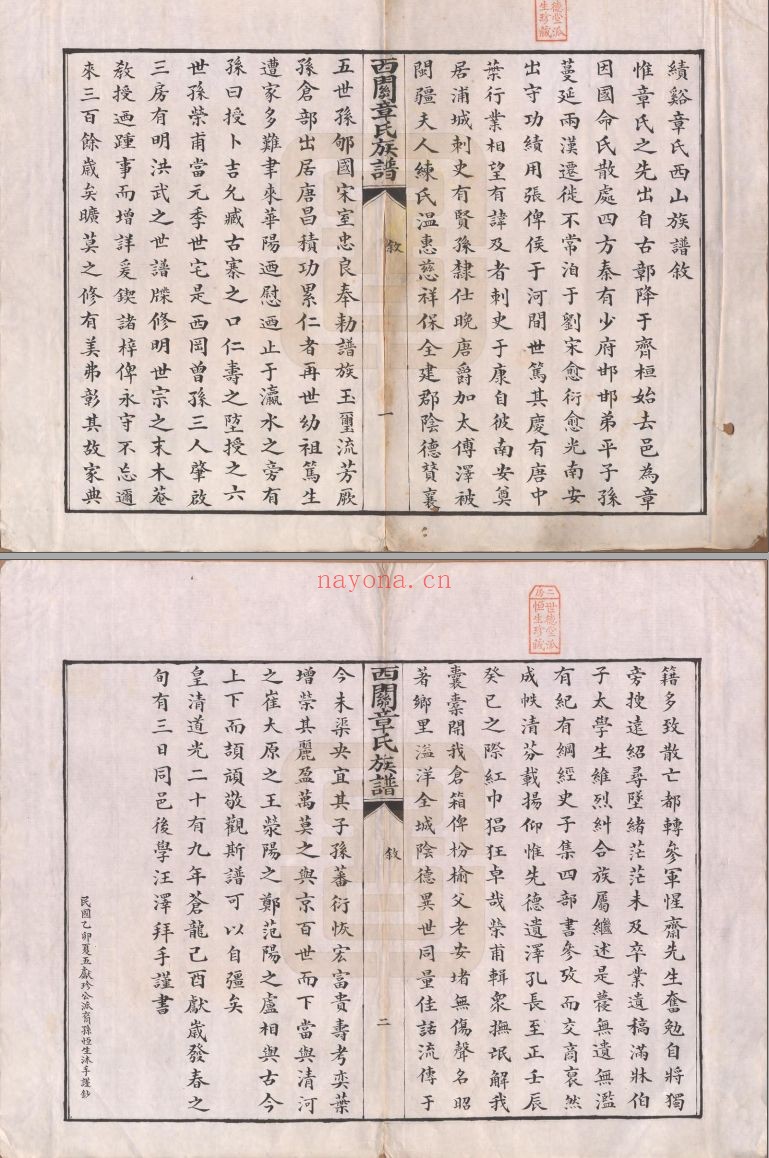 德堂派
生珍藏
績谿章氏西山族譜敘
惟章氏之先出自古鄣降于齊桓始去邑為章
因國命氏散處四方秦有少府邯邯弟平子孫
蔓延兩漢遷徙不常洎于劉宋愈衍愈光南安
出守功績用張俾侯于河間世篤其慶有唐中
葉行業相望有諱及者刺史于康自彼南安奠
居浦城刺史有賢孫隸仕晚唐爵加太傅澤被
閩疆夫人練氏溫惠慈祥保全建郡陰德贊襄
西關章氏族譜
敘
一
五世孫郇國宋室忠良奉勅譜族玉璽流芳厥
孫倉部出居唐昌積功累仁者再世幼祖篤生
遭家多難聿來華陽迺慰迺止于瀛水之旁有
孫曰授卜吉允臧古寨之口仁壽之墬授之六
世孫榮甫當元季世宅是西岡曾孫三人肇啟
三房有明洪武之世譜牒修明世宗之末木菴
教授迺踵事而增詳爰鍥諸梓俾永守不忘邇
來三百餘歲矣曠莫之修有美弗彰其故家典
nayona.cn
二房
世德堂派
恒生珍藏
籍多致散亡都轉參軍惺齋先生奮勉自將獨
旁搜遠紹尋墜緒茫茫未及卒業遺稿滿牀伯
子太學生維烈糾合族屬繼述是蘉無遺無濫
有紀有綱經史子集四部書參攷而交商裒然
成帙清芬載揚仰惟先德遺澤孔長至正壬辰
癸巳之際紅巾猖狂卓哉榮甫輯眾撫氓解我
囊橐開我倉箱俾枌榆父老安堵無傷聲名昭
著鄉里溢洋全城陰德異世同量佳話流傳于
西關章氏族譜
敘
二
今未渠央宜其子孫蕃衍恢宏富貴壽考奕葉
增榮其麗盈萬莫之與京百世而下當與清河
之崔大原之王滎陽之鄭范陽之盧相與古今
上下而頡頏敬觀斯譜可以自彊矣
皇清道光二十有九年蒼龍己酉獻歲發春之
旬有三日同邑後學汪澤拜手謹書
民國乙卯夏五獻珍公派裔孫恒生沐手謹鈔